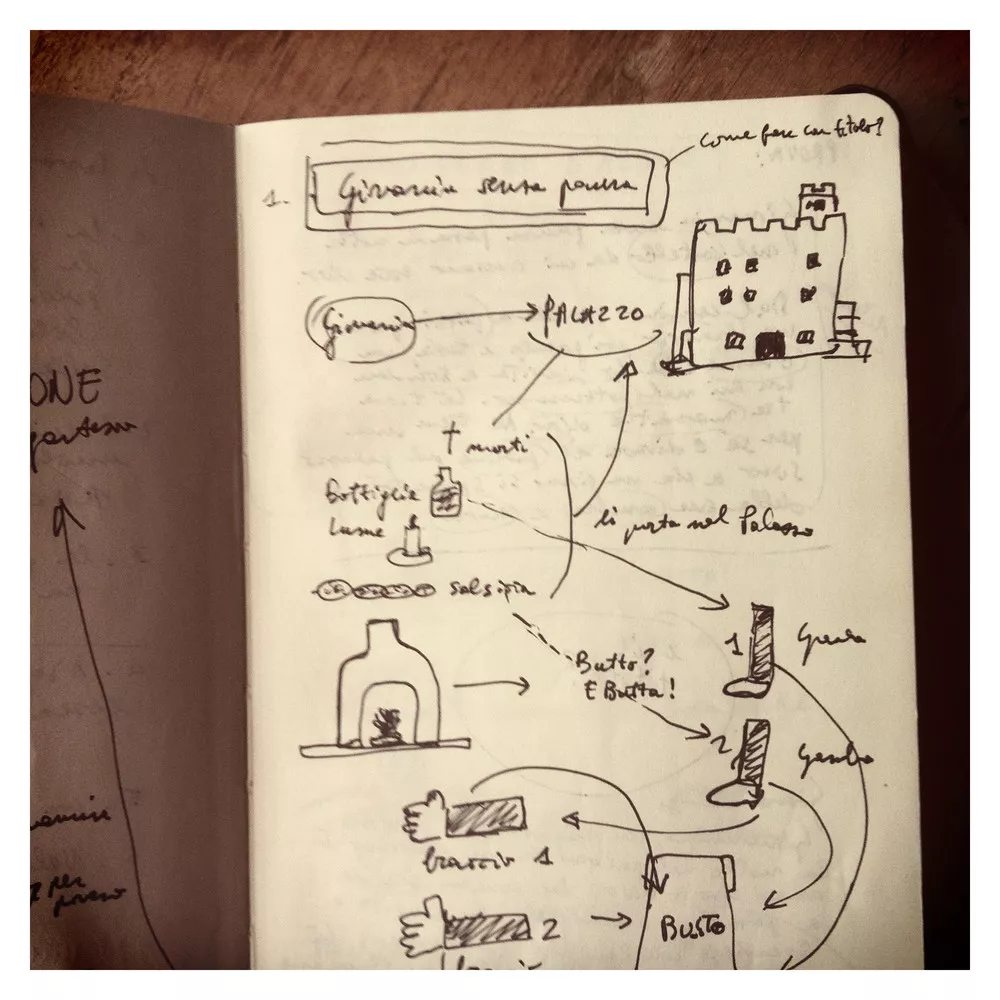 come fare con titolo?
1. Giovannin senza paura
Giovannin PALAZZO
morti
Bottiglia
Lume
li porta nel Palazzo
salsiccia
1 Gamba
Butto?
E Butta!
2 Gamba
braccio 1
2
BUSTO
ONE
per